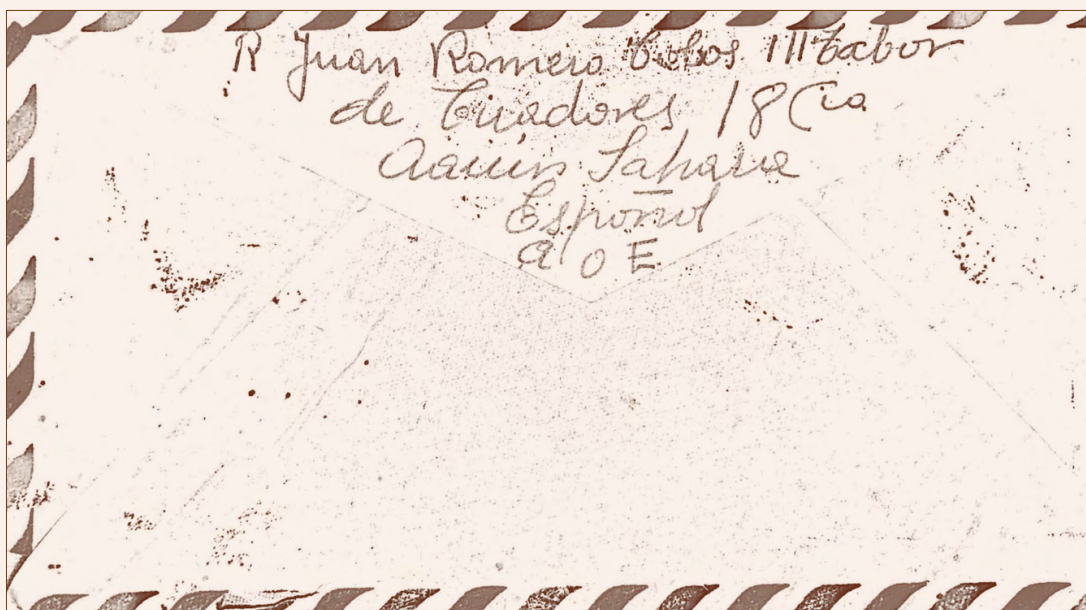 R Juan Romero Cobos III Tabor
de Tiradores 18 Cia
Aaiun Sahara
Español
A O E